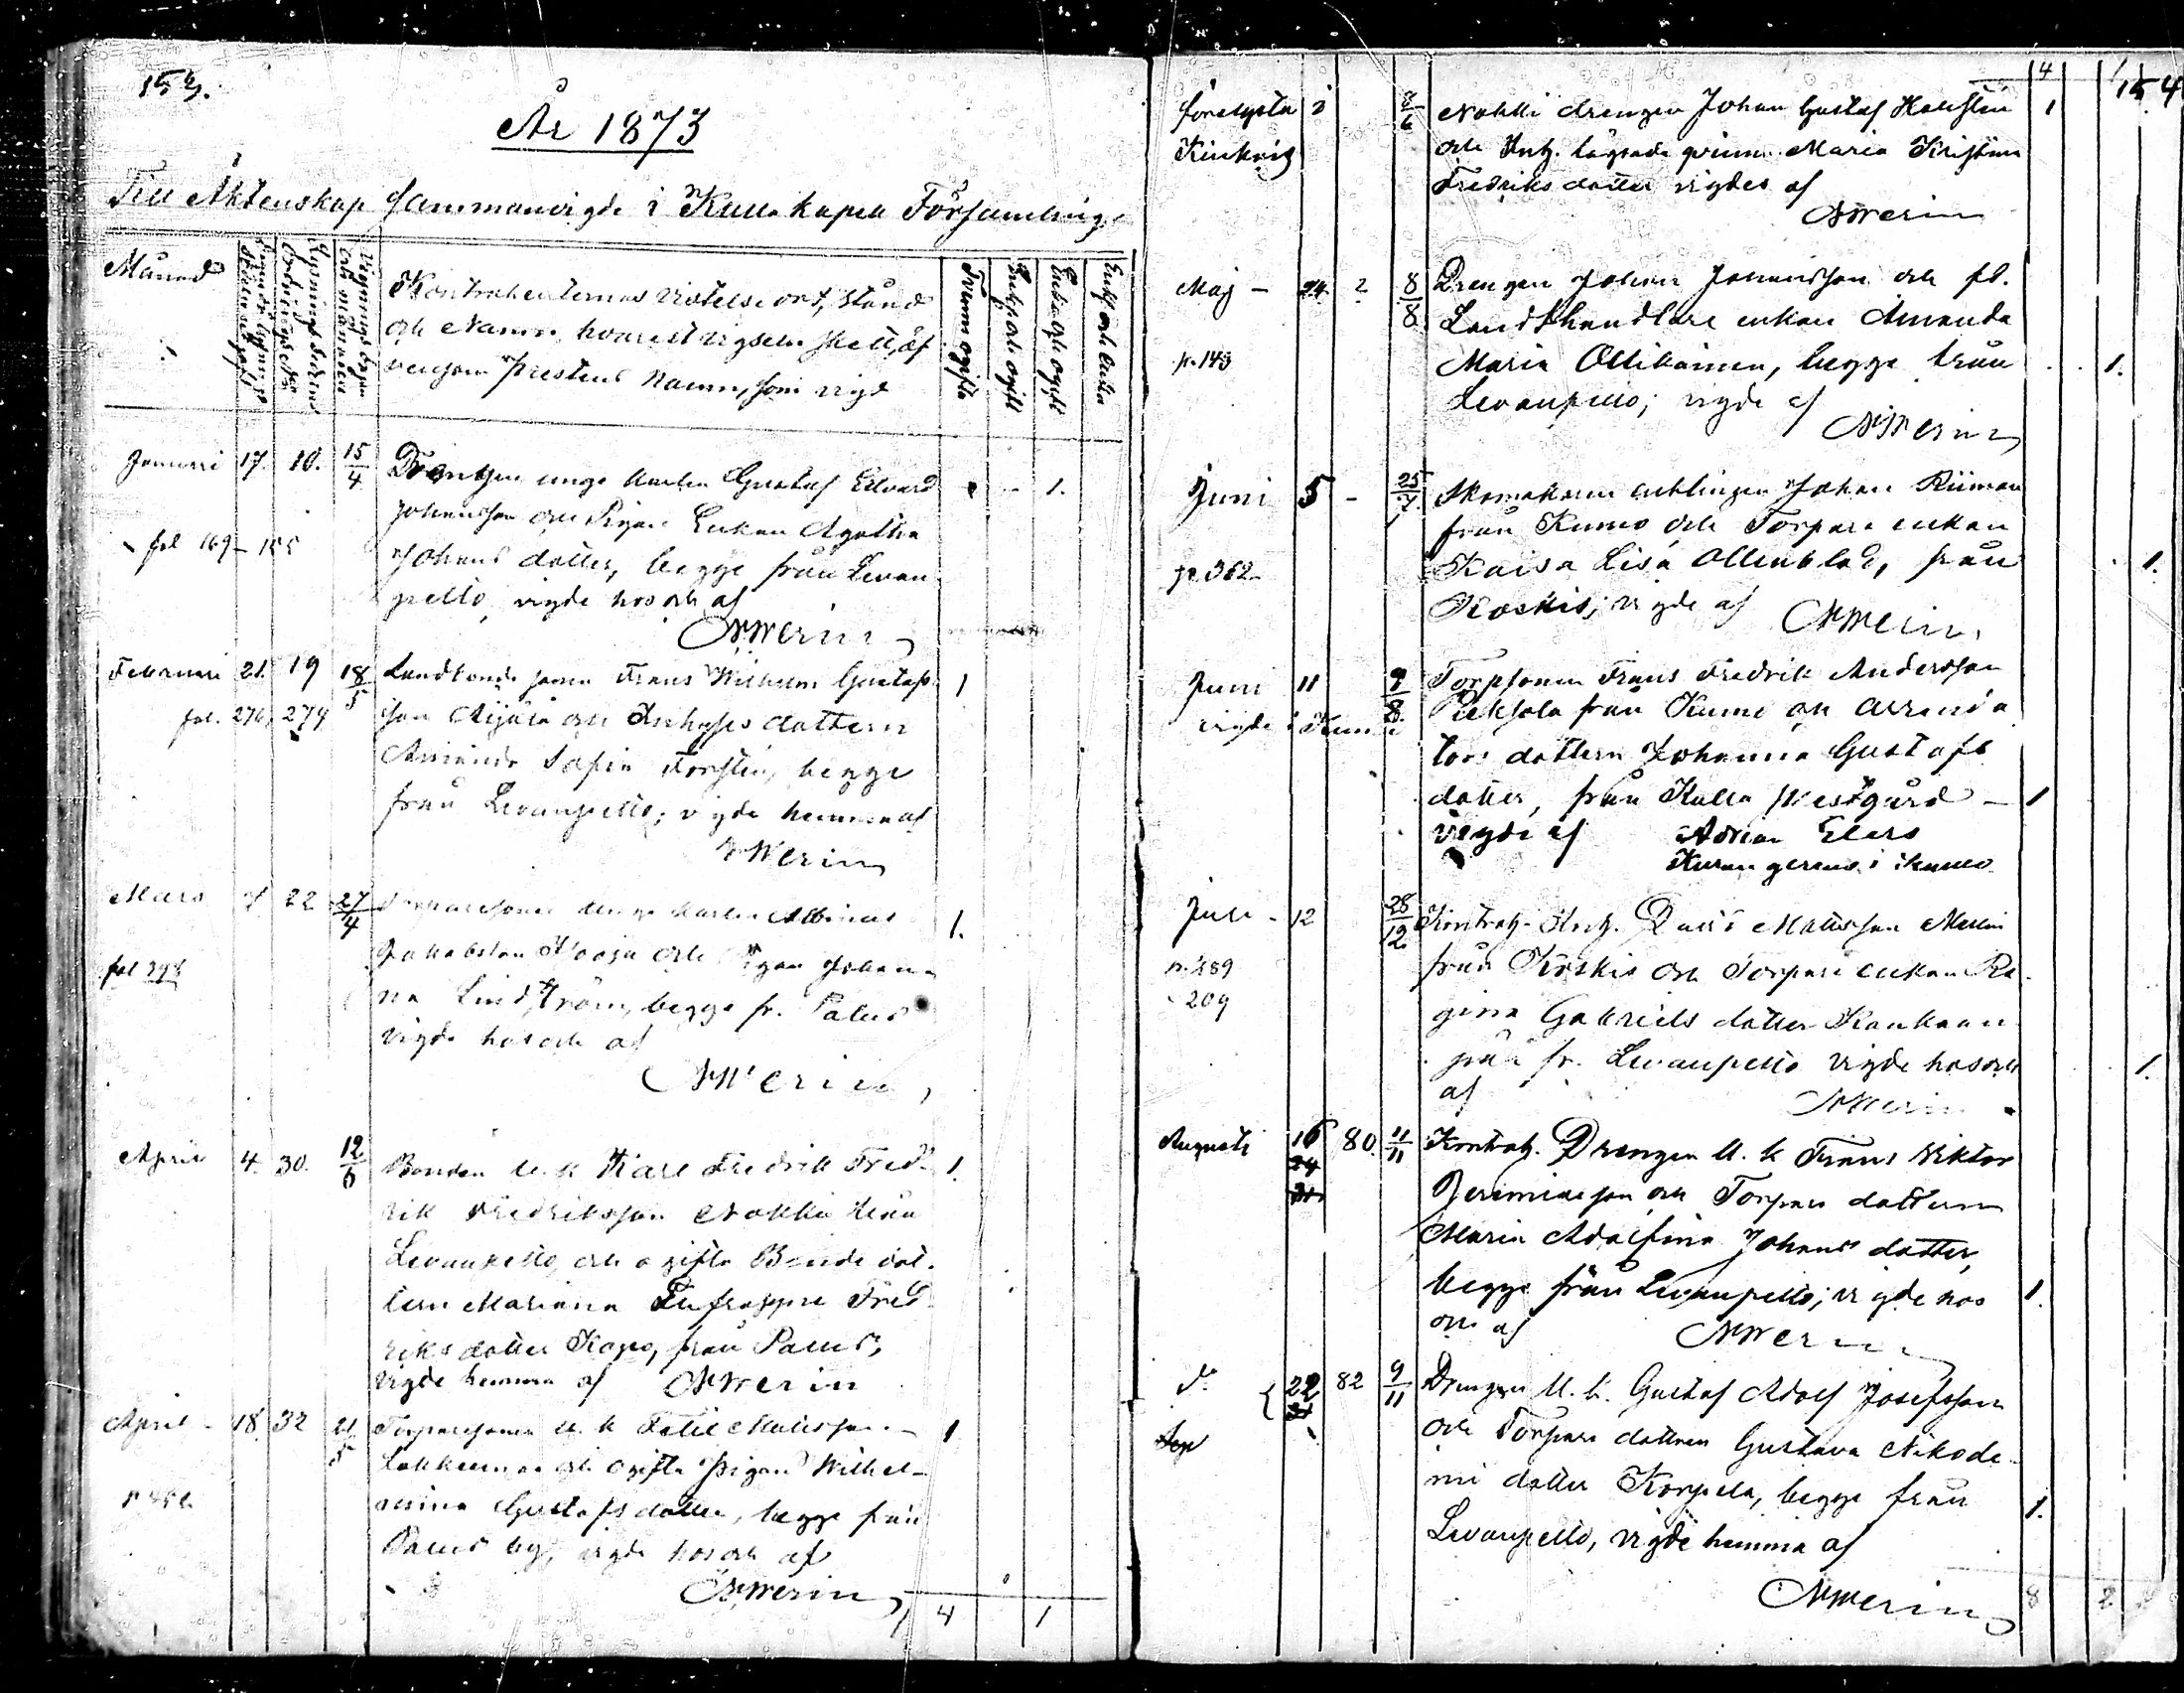 153.
År 1873
Till Äktenskap sammanvigde i Kulla kapell Församling
Månad
Kontrahenternas vistelse ort, stånd
och Namn, hvarest vigseln skett, äf
vensom prestens namn, som vigd
Begge ogifte
Enkling och ogift
Enka och ogift
Enkl och Enka
Januari 17. 10. 15/4 Drengen unge karlen Gustaf Edvard 1.
Johansson och Pigan Enkan Agatha
fol 169 - 155
Johans dotter, begge från Levan
pello, vigde hos och af
NWerin
Februari 21. 19 18/5 Landbonde sonen Frans Wilhelm Gustafs 1
fol. 276, 274
son Äijälä och Inhyses dottern
Amanda Sofia Forsten, begge
från Levanpello; vigde hemma af
NWerin
Mars 22 27/4 Torparesonen unge karlen Albinus 1.
Jakobsson och Pigan Johan-
na Lindström, begge fr. Palus
vigde hos och af
NWerin
April 4. 30. 12/6 Bonden u. k. Karl Fredrik Fred- 1.
rik Fredriksson Nokka från
Levanpello och ogifta Bonde dot-
tern Mariana Eufrosyne Fred-
riks dotter Kopo, från Palus,
vigde hemma af NWerin
April - 18. 32 21/5 Torparesonen u. k. Felix Matsson 1
och ogifta pigan Wilhel-
mina Gustafs dotter, begge från
Palus by, vigde hos och af
NWerin
4 1
154
4 1
2 8/6 Nokki drengen Johan Gustaf Hollsten 1
och Inh. qvinn. Maria Kristina
Fredriks dotter vigdes af
NWerin
Maj - 24. 2 8/8 Drengen Johan Johansson och fd.
Landthandlare enkan Amanda
p. 143
Maria Ollikainen, begge från 1.
Levanpello; vigde af
NWerin
Juni 5 - 25/7 Skomakaren enklingen Johan Riiman
från Kumo och Torpare enkan
p. 362
Kaisa Lisa Ollenblad, från 1.
Koskis; vigde af NWerin
Juni 11 9/8 Torpsonen Frans Fredrik Andersson
vigde i Kumo
från Kumo och Arrenda
tors dottern Johanna Gustafs
dotter, från Kulla Westgård - 1
vigde af Adrian Elers
i Kumo
Juli - 12 28/12 Kontrah. Inh. David Mattsson Mellin
p. 189
från Koskis och Torpare enkan Re-
209
gina Gabriels dotter Kankaan
pää fr. Levanpello vigde hos och 1.
af NWerin
Augusti 16 80. 11/11 Kontrah. Drengen U. k. Frans Viktor
24
31
Jeremiasson och Torpare dottern
Maria Adolfina Johans dotter,
begge från Levanpello; vigde hos 1.
och af NWerin
do 22 82 9/11 Drengen U. k. Gustaf Adolf Josefsson
31
Sep
och Torpare dottern Gustava Nikode-
mi dotter Korpela, begge från 1.
Levanpello, vigde hemma af
NWerin
8 2